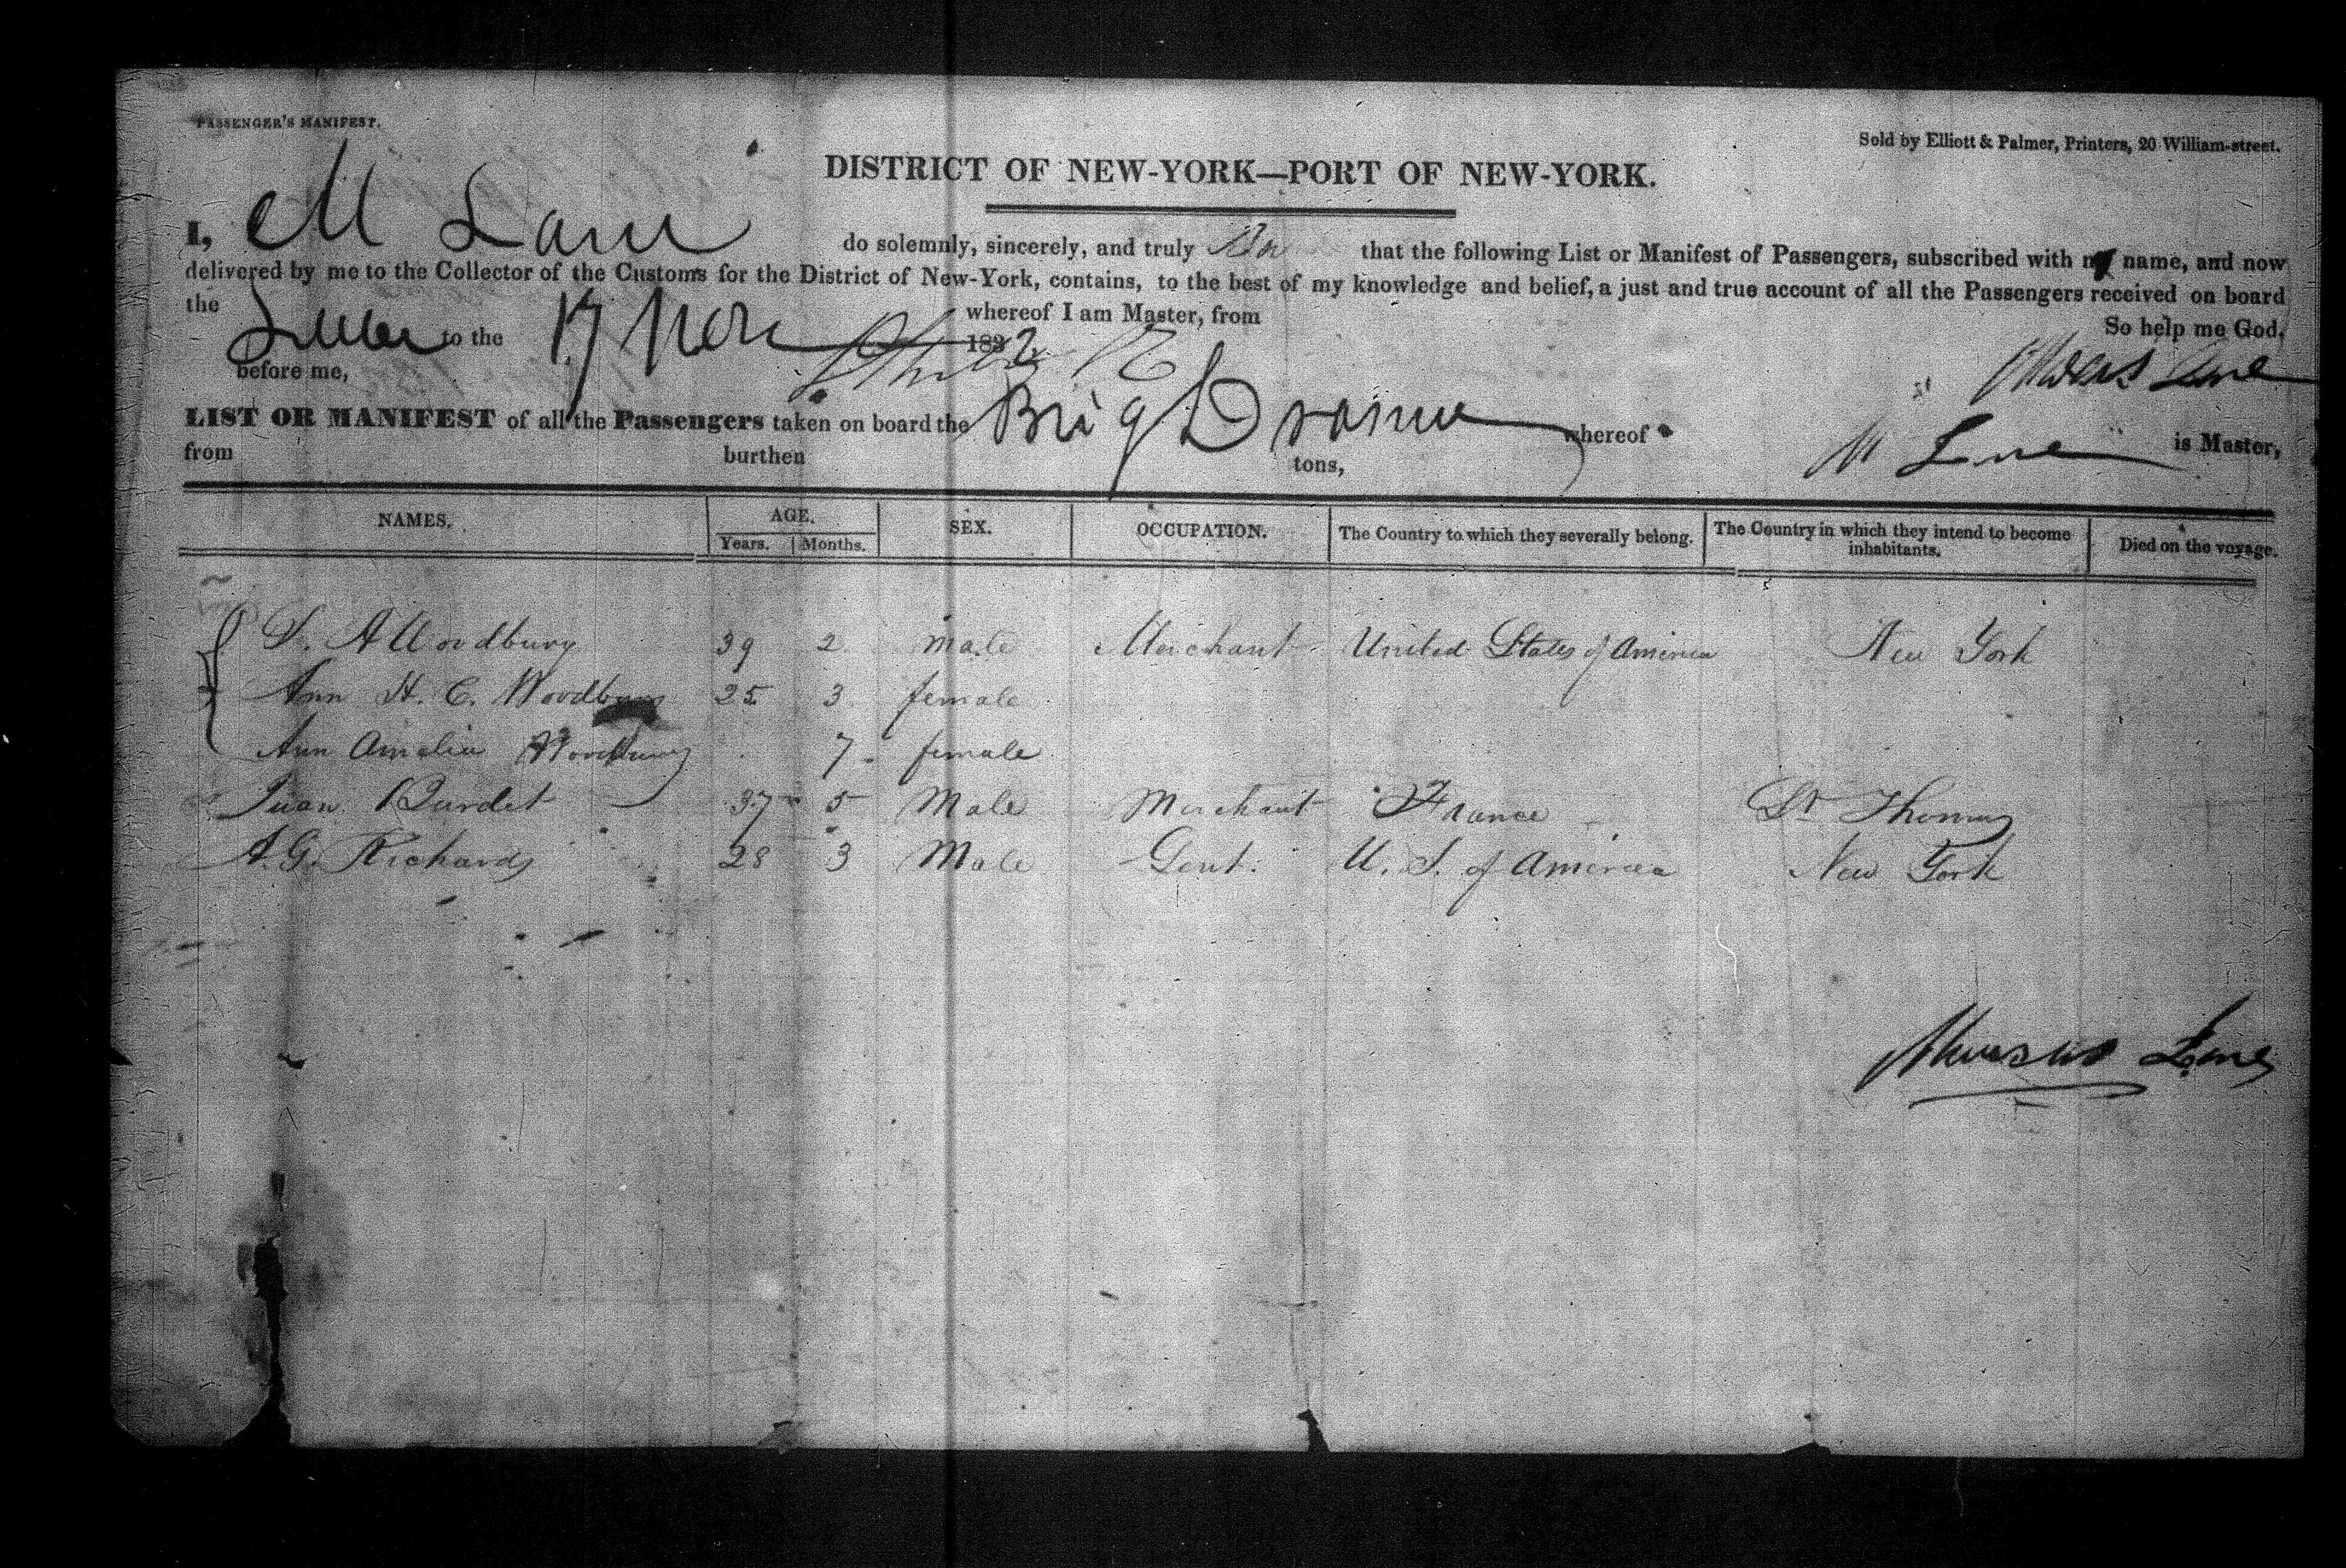 PASSENGER'S MANIFEST.
Sold by Elliott & Palmer, Printers, 20 William-street.
DISTRICT OF NEW-YORK—PORT OF NEW-YORK.
I, M Lane do solemnly, sincerely, and truly that the following List or Manifest of Passengers, subscribed with my name, and now
delivered by me to the Collector of the Customs for the District of New-York, contains, to the best of my knowledge and belief, a just and true account of all the Passengers received on board
the whereof I am Master, from
So help me God.
to the 17 Nov 1832
before me,
LIST OR MANIFEST of all the Passengers taken on board the Brig whereof M Lane is Master,
from burthen tons,
NAMES. AGE. SEX. OCCUPATION. The Country to which they severally belong. The Country in which they intend to become inhabitants. Died on the voyage.
Years. Months.
S. A Woodbury 39 2 male Merchant United States of America New York
Ann H. C. Woodbury 25 3 female
Ann Amalia Woodbury 7 female
Juan Burdet 37 5 Male Merchant France St Thomas
A. G. Richards 28 3 Male Gent. U. S. of America New York
Lane